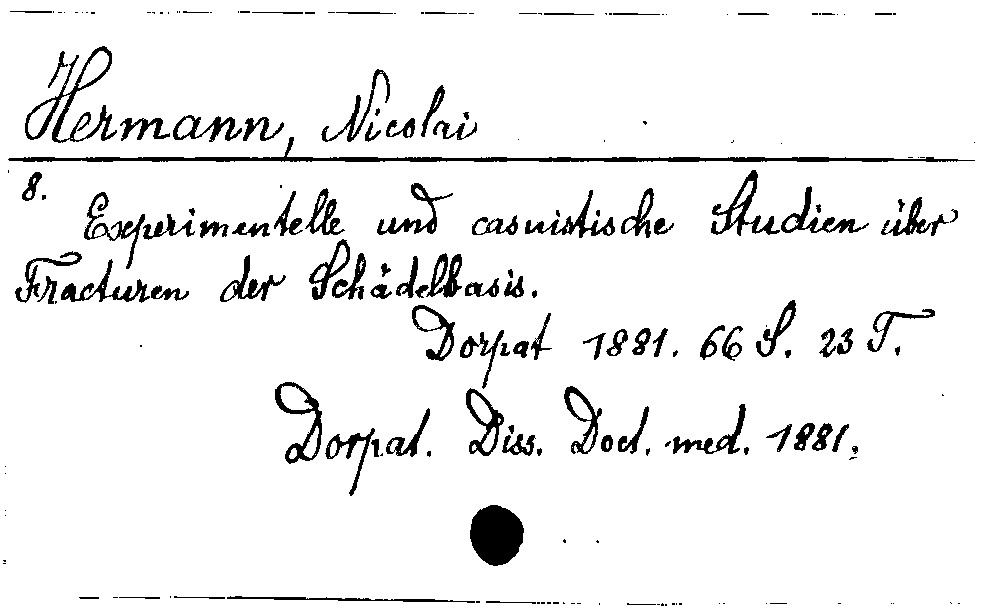 Hermann, Nicolai
8.
Experimentelle und casuistische Studien über
Fracturen der Schädelbasis.
Dorpat 1881. 66 S. 23 T.
Dorpat. Diss. Doct. med. 1881.